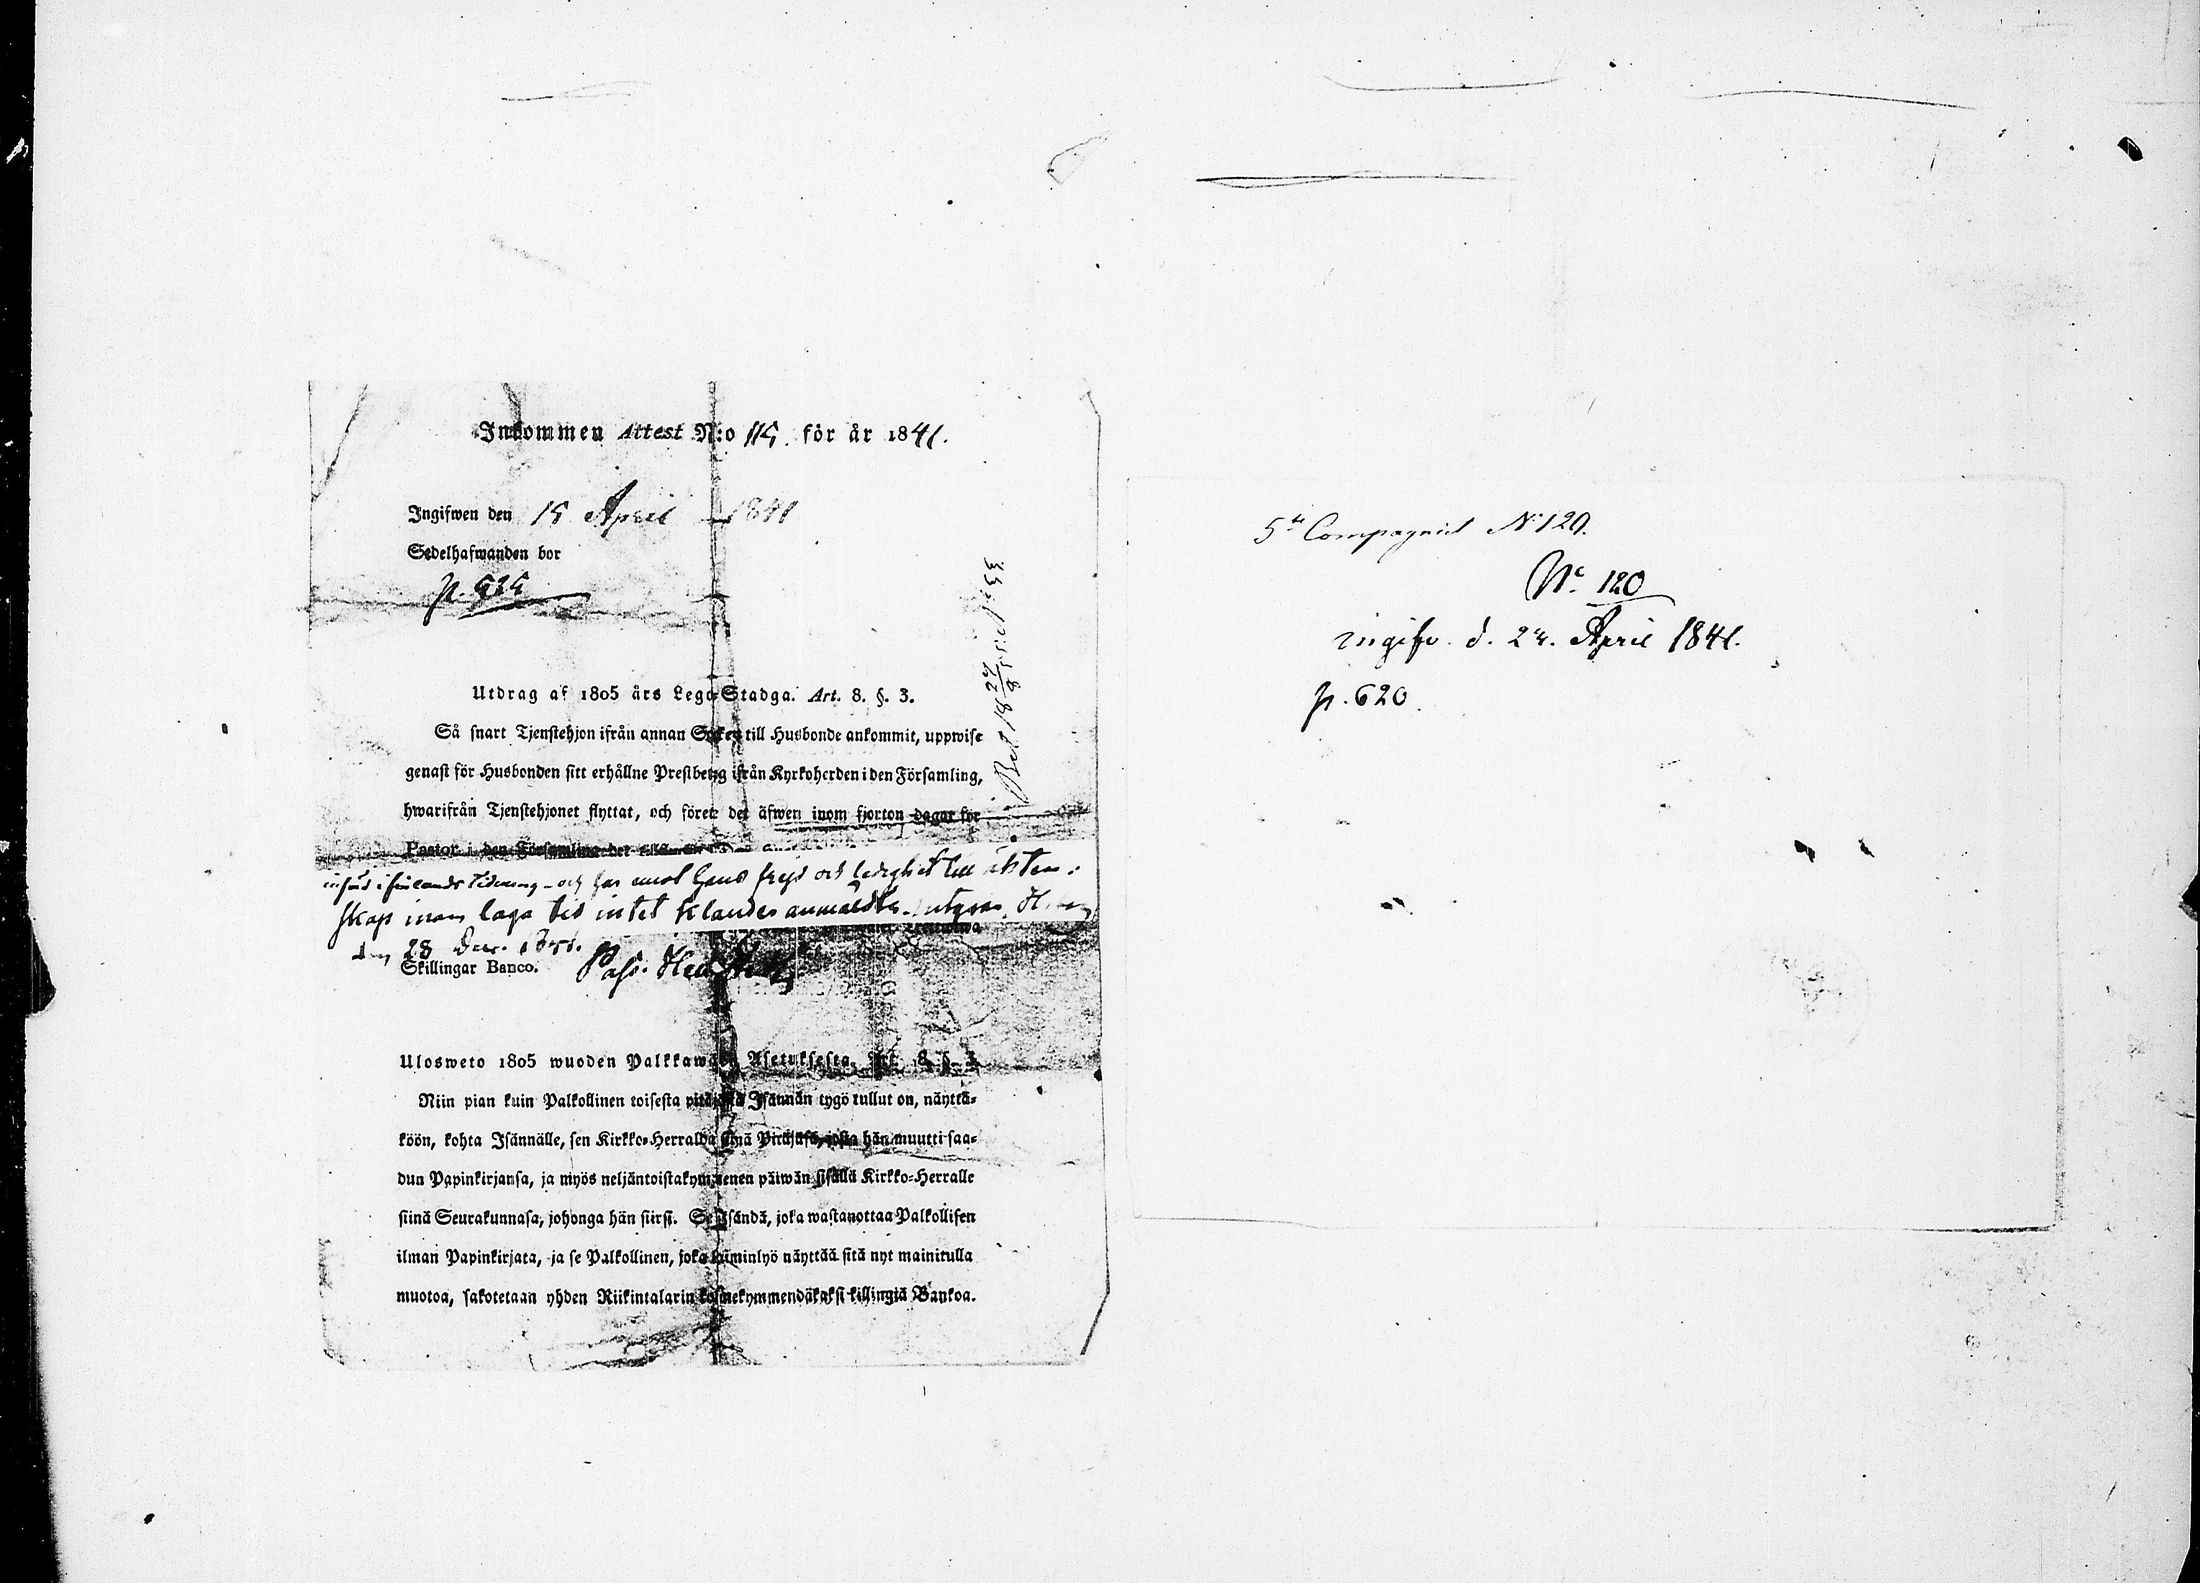 Inkommen Attest N:o 115. för år 1841.
Ingifwen den 15 April 1841
Sedelhafwanden bor
p. 525
Utdrag af 1805 års Lego-Stadga. Art. 8. §. 3.
Så snart Tjenstehjon ifrån annan Socken till Husbonde ankommit, uppwise
genast för Husbonden sitt erhållne Prestbetyg ifrån Kyrkoherden i den Församling,
hwarifrån Tjenstehjonet flyttat, och förete det äfwen inom fjorton dagar för
Pastor i den Församling
införd i Finlands Tidning och har emot hans frejd och ledighet till äkten-
skap inom laga tid intet klander anmäldts.
den 28 Dec.
Skillingar Banco.
Ulosweto 1805 wuoden Palkkawäen Asetuksesta. Art. 8. §. 3.
Niin pian kuin Palkollinen toisesta pitäjästä Isännän tygö tullut on, näyttä-
köön, kohta Isännälle, sen Kirkko-Herralda siinä Pitäjäsä, josta hän muutti saa-
dun Papinkirjansa, ja myös neljäntoistakymmenen päiwän sisällä Kirkko-Herralle
siinä Seurakunnasa, johonga hän siirsi. Se Isändä, joka wastanottaa Palkollisen
ilman Papinkirjata, ja se Palkollinen, joka laiminlyö näyttää sitä nyt mainitulla
muotoa, sakotetaan yhden Riikintalarin kolmekymmendäkaksi killingiä Bankoa.
5te Compagniet No 129.
No. 120
ingifv. d. 24. April 1841.
p. 620.